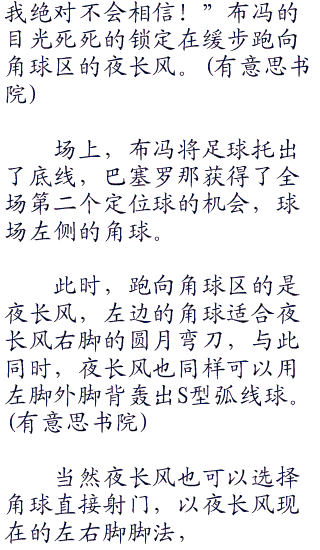 我绝对不会相信！”布冯的
目光死死的锁定在缓步跑向
角球区的夜长风。(有意思书
院)
场上，布冯将足球托出
了底线，巴塞罗那获得了全
场第二个定位球的机会，球
场左侧的角球。
此时，跑向角球区的是
夜长风，左边的角球适合夜
长风右脚的圆月弯刀，与此
同时，夜长风也同样可以用
左脚外脚背轰出S型弧线球。
(有意思书院)
当然夜长风也可以选择
角球直接射门，以夜长风现
在的左右脚脚法，